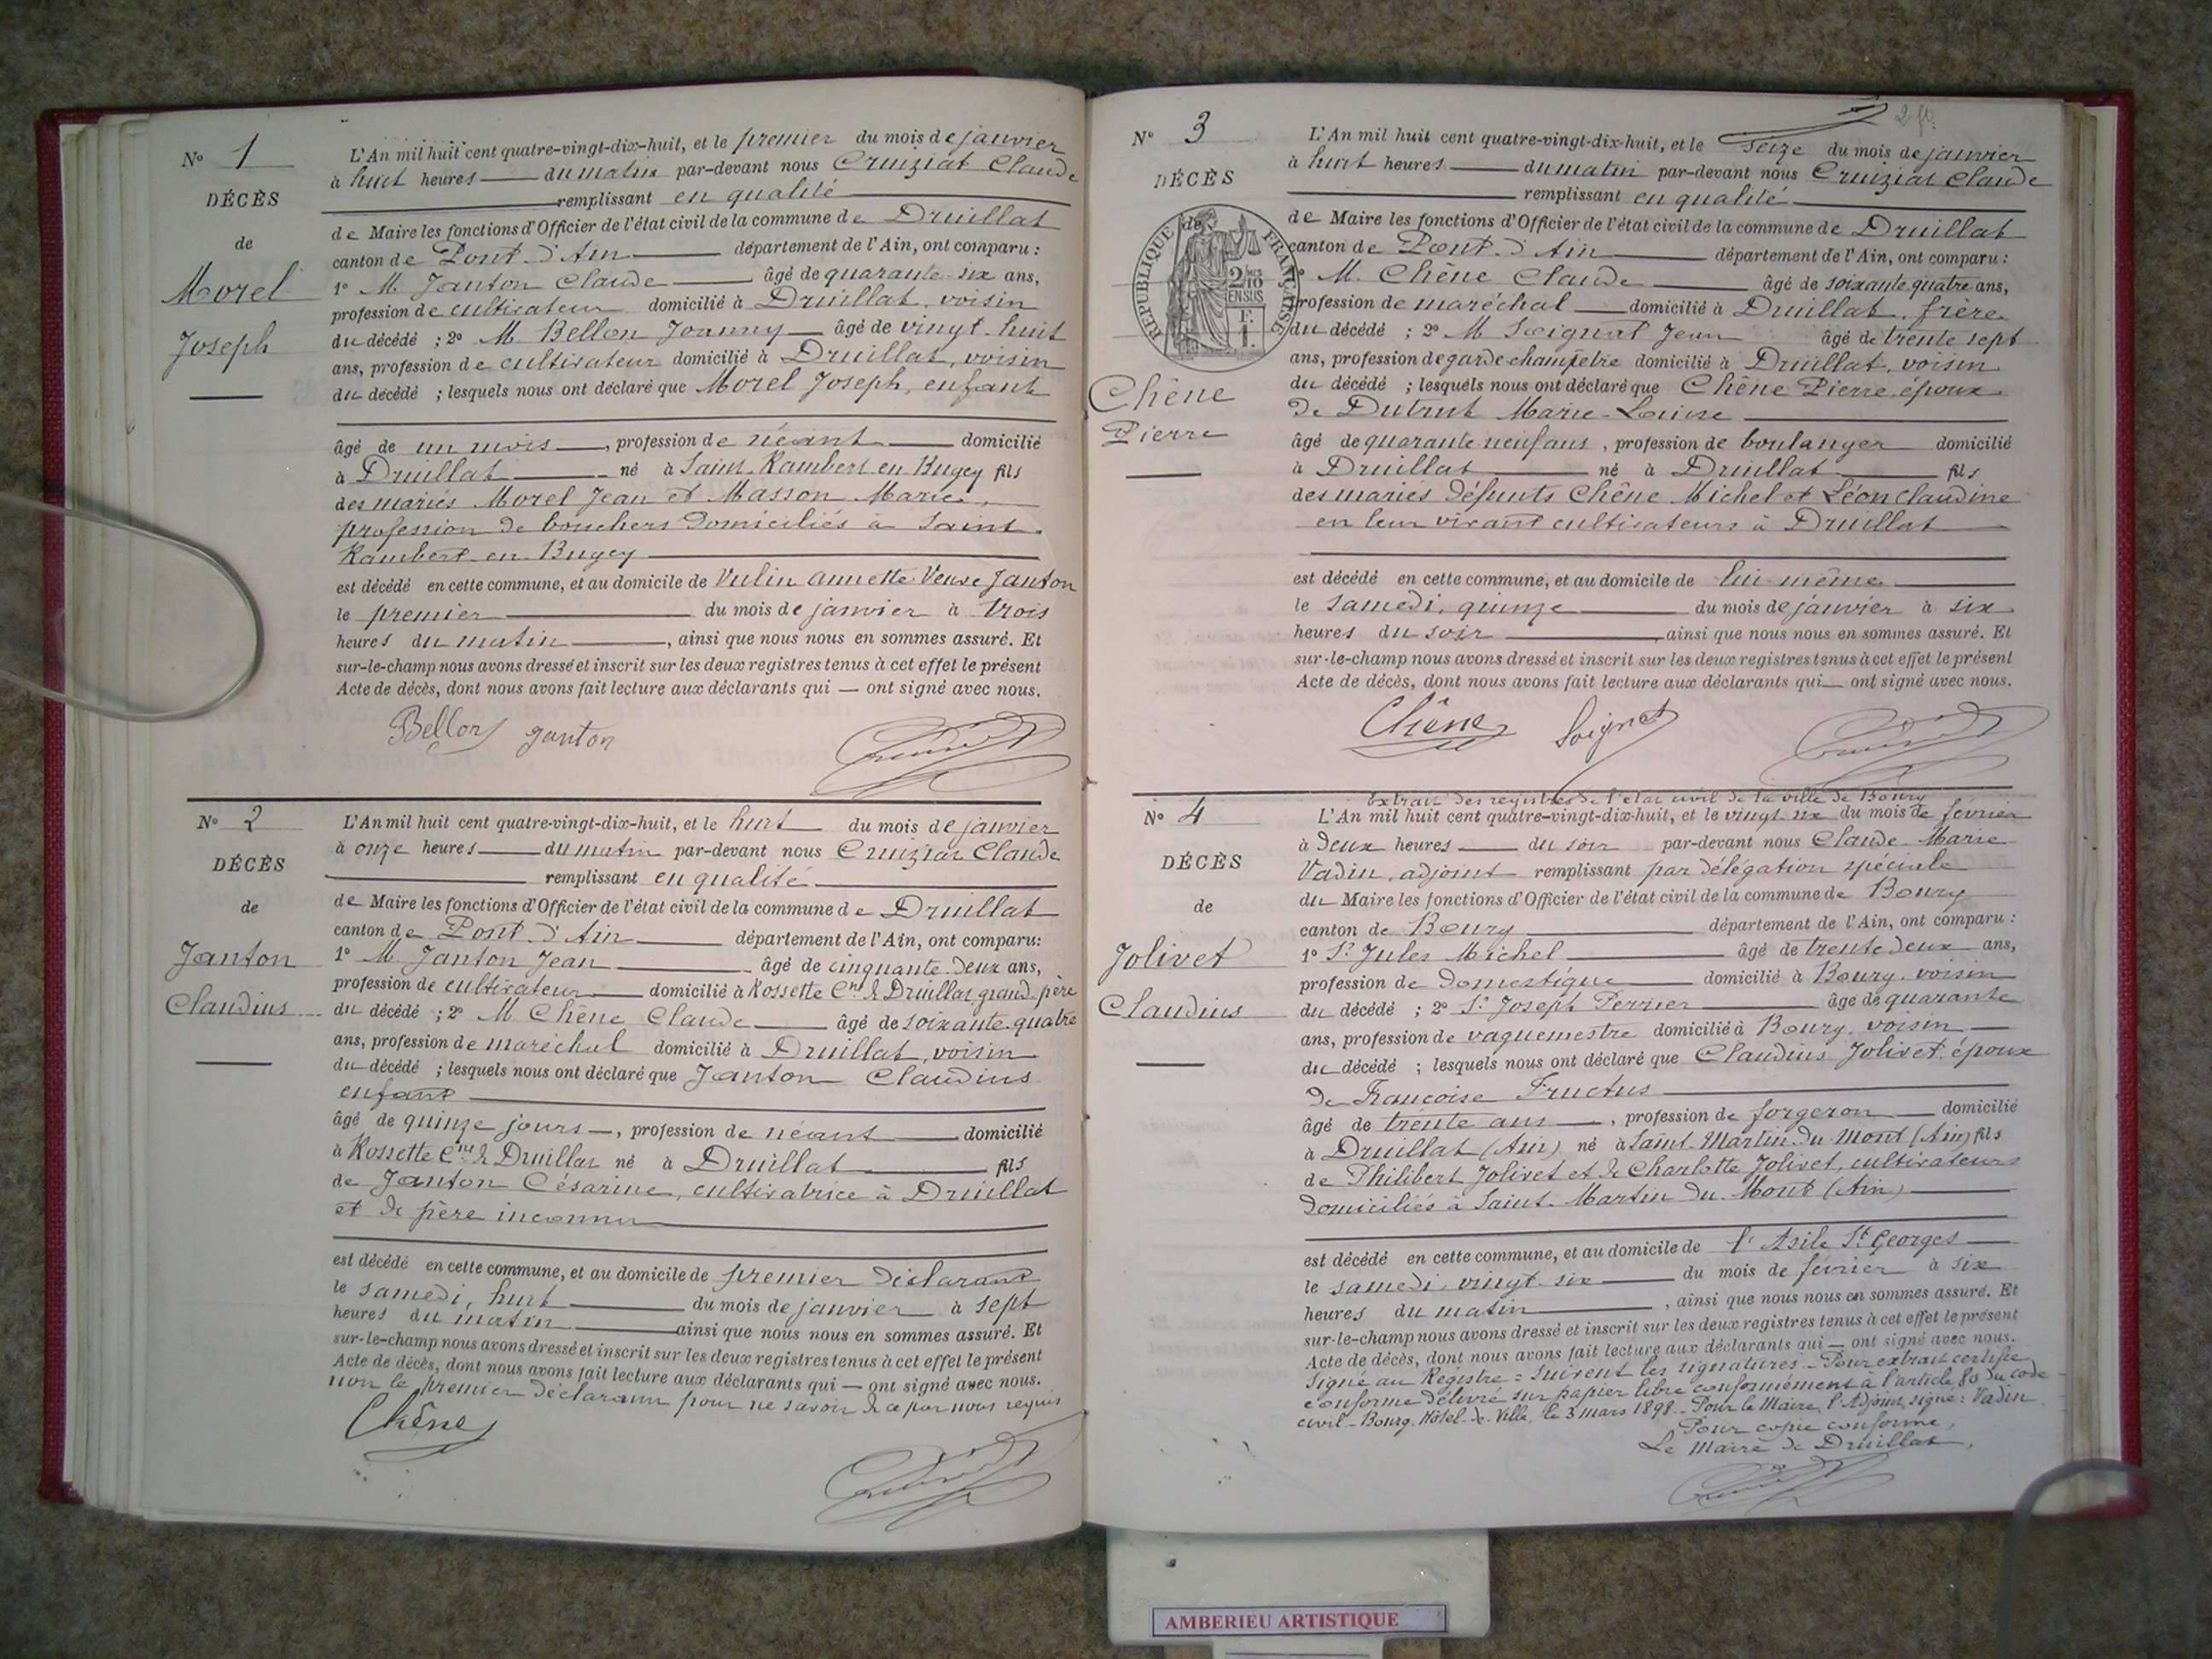 N° 1
DÉCÈS
de
Morel
Joseph
L'An mil huit cent quatre-vingt-dix-huit, et le premier du mois de janvier
à huit heures du matin par-devant nous Cruiziat Claude
remplissant en qualité
de Maire les fonctions d'Officier de l'état civil de la commune de Druillat
canton de Pont-d'Ain département de l'Ain, ont comparu :
1° M Janton Claude âgé de quarante-six ans,
profession de cultivateur domicilié à Druillat, voisin
du décédé ; 2° M. Bellon Joanny âgé de vingt-huit
ans, profession de cultivateur domicilié à Druillat, voisin
du décédé ; lesquels nous ont déclaré que Morel Joseph, enfant
âgé de un mois, profession de néant domicilié
à Druillat né à Saint-Rambert-en-Bugey fils
des mariés Morel Jean et Masson Marie,
profession de bouchers domiciliés à Saint-
Rambert-en-Bugey
est décédé en cette commune, et au domicile de Vulin Annette Veuve Janton
le premier du mois de janvier à trois
heures du matin, ainsi que nous nous en sommes assuré. Et
sur-le-champ nous avons dressé et inscrit sur les deux registres tenus à cet effet le présent
Acte de décès, dont nous avons fait lecture aux déclarants qui — ont signé avec nous.
Bellon Janton
N° 2
DÉCÈS
de
Janton
Claudius
L'An mil huit cent quatre-vingt-dix-huit, et le huit du mois de janvier
à onze heures du matin par-devant nous Cruiziat Claude
remplissant en qualité
de Maire les fonctions d'Officier de l'état civil de la commune de Druillat
canton de Pont-d'Ain département de l'Ain, ont comparu:
1° M Janton Jean âgé de cinquante-deux ans,
profession de cultivateur domicilié à Rossette Cne de Druillat, grand-père
du décédé ; 2° M Chêne Claude âgé de soixante-quatre
ans, profession de maréchal domicilié à Druillat, voisin
du décédé ; lesquels nous ont déclaré que Janton Claudius
enfant
âgé de quinze jours, profession de néant domicilié
à Rossette Cne de Druillat né à Druillat fils
de Janton Césarine, cultivatrice à Druillat
et de père inconnu
est décédé en cette commune, et au domicile de premier déclarant
le samedi, huit du mois de janvier à sept
heures du matin ainsi que nous nous en sommes assuré. Et
sur-le-champ nous avons dressé et inscrit sur les deux registres tenus à cet effet le présent
Acte de décès, dont nous avons fait lecture aux déclarants qui — ont signé avec nous.
non le premier déclarant pour ne savoir de ce par nous requis
Chêne
N° 3
DÉCÈS
de
RÉPUBLIQUE FRANÇAISE
2/10 EN SUS
Chêne
Pierre
L'An mil huit cent quatre-vingt-dix-huit, et le seize du mois de janvier
à huit heures du matin par-devant nous Cruiziat Claude
remplissant en qualité
de Maire les fonctions d'Officier de l'état civil de la commune de Druillat
canton de Pont-d'Ain département de l'Ain, ont comparu :
M. Chêne Claude âgé de soixante-quatre ans,
profession de maréchal domicilié à Druillat, frère
du décédé ; 2° M Soignat Jean âgé de trente-sept
ans, profession de garde-champêtre domicilié à Druillat, voisin
du décédé ; lesquels nous ont déclaré que Chêne Pierre, époux
de Dutrut Marie-Louise
âgé de quarante-neuf ans, profession de boulanger domicilié
à Druillat né à Druillat fils
des mariés défunts Chêne Michel et Léon Claudine
en leur vivant cultivateurs à Druillat
est décédé en cette commune, et au domicile de lui-même
le samedi, quinze du mois de janvier à six
heures du soir ainsi que nous nous en sommes assuré. Et
sur-le-champ nous avons dressé et inscrit sur les deux registres tenus à cet effet le présent
Acte de décès, dont nous avons fait lecture aux déclarants qui — ont signé avec nous.
Chêne Soignat
N° 4
DÉCÈS
de
Jolivet
Claudius
Extrait des registres de l'état civil de la ville de Bourg
L'An mil huit cent quatre-vingt-dix-huit, et le vingt-six du mois de février
à deux heures du soir par-devant nous Claude-Marie
Vadin, adjoint remplissant par délégation spéciale
du Maire les fonctions d'Officier de l'état civil de la commune de Bourg
canton de Bourg département de l'Ain, ont comparu :
1° Sr Jules Michel âgé de trente-deux ans,
profession de domestique domicilié à Bourg, voisin
du décédé ; 2° Sr Joseph Perrier âgé de quarante
ans, profession de vaguemestre domicilié à Bourg, voisin
du décédé ; lesquels nous ont déclaré que Claudius Jolivet, époux
de Françoise Fructus
âgé de trente ans, profession de forgeron domicilié
à Druillat (Ain) né à Saint-Martin-du-Mont (Ain) fils
de Philibert Jolivet et de Charlotte Jolivet, cultivateurs
domiciliés à Saint-Martin-du-Mont (Ain)
est décédé en cette commune, et au domicile de l'Asile St Georges
le samedi, vingt-six du mois de février à six
heures du matin, ainsi que nous nous en sommes assuré. Et
sur-le-champ nous avons dressé et inscrit sur les deux registres tenus à cet effet le présent
Acte de décès, dont nous avons fait lecture aux déclarants qui — ont signé avec nous.
Signé au Registre = suivent les signatures. - Pour extrait certifié
conforme délivré sur papier libre conformément à l'article 80 du code
civil - Bourg, Hôtel-de-Ville, le 3 mars 1898. - Pour le Maire, l'Adjoint, signé : Vadin
Pour copie conforme,
Le Maire de Druillat,
AMBERIEU ARTISTIQUE